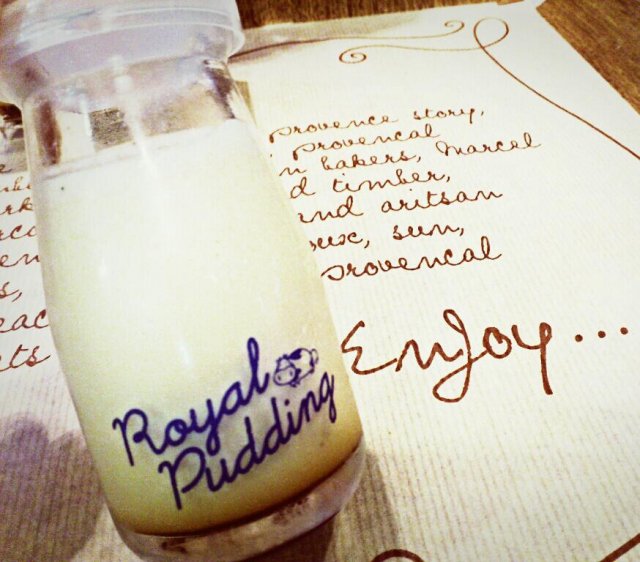 Royal
Pudding
provence story,
provencal
bakers, Marcel
timber,
and aritsan
sun,
provencal
Enjoy...